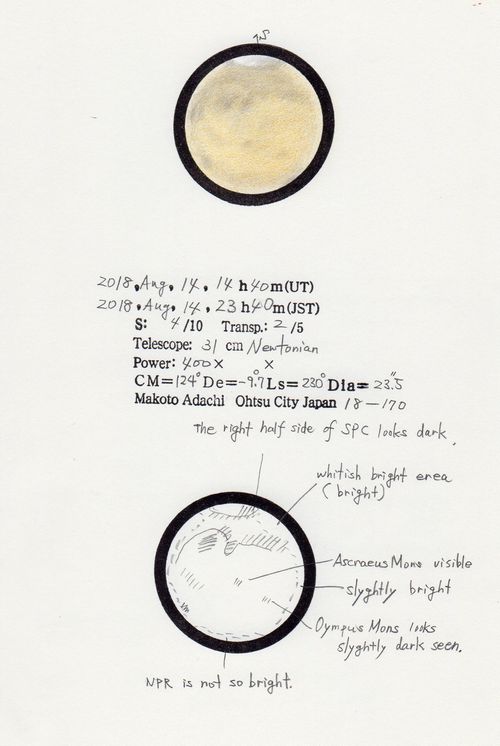 ↑S
2018, Aug, 14, 14 h 40 m (UT)
2018, Aug, 14, 23 h 40 m (JST)
S: 4 /10 Transp.: 2 /5
Telescope: 31 cm Newtonian
Power: 400× ×
CM=124° De=-9.7° Ls=230° Dia=23.5"
Makoto Adachi Ohtsu City Japan 18-170
The right half side of SPC looks dark.
whitish bright erea
(bright)
Ascraeus Mons visible
slyghtly bright
Olympus Mons looks
slyghtly dark seen.
NPR is not so bright.